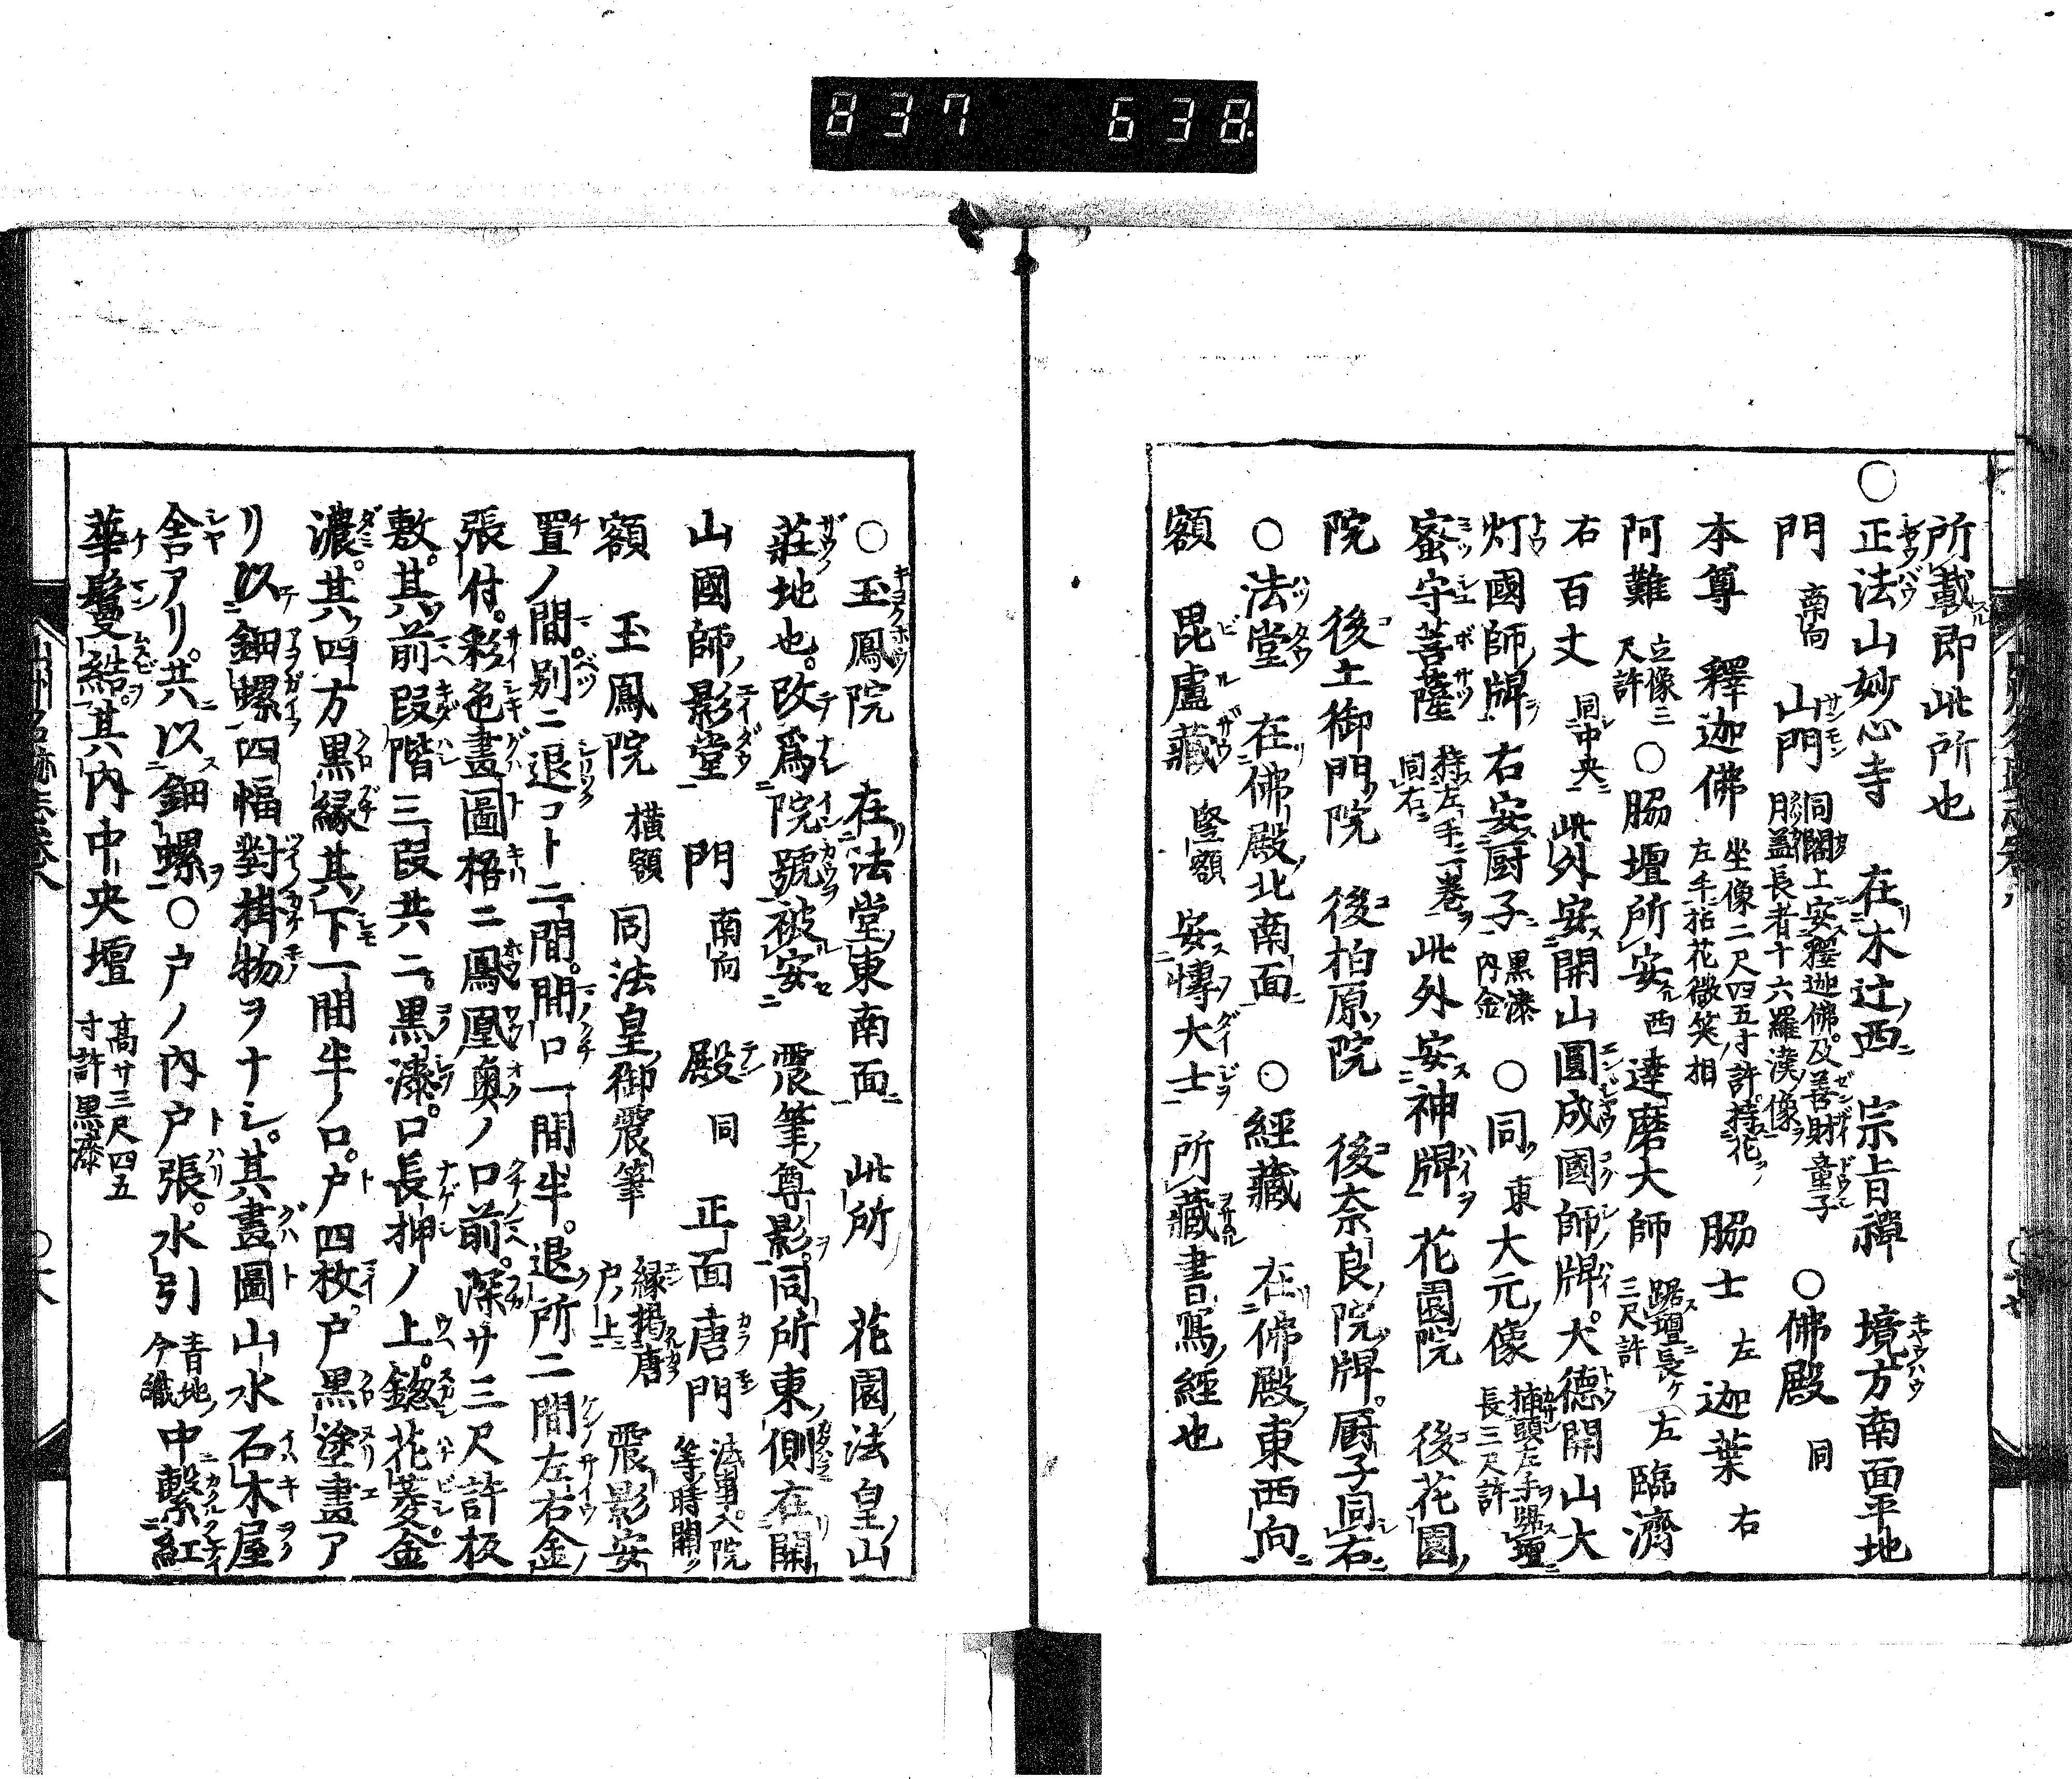 837 638
所載即此所也
○正法山妙心寺 在木辻西 宗旨禪 境方南面平地
門 南向 山門 同閣上安釋迦佛及善財童子月蓋長者十六羅漢像 ○佛殿 同
本尊 釋迦佛 坐像二尺四五寸許持花左手拈花微笑相 脇士 左 迦葉 右
阿難 立像三尺許 ○脇壇所安 西 達磨大師 踞壇長三尺許 左 臨濟
右 百丈 同中央 此外安開山圓成國師牌 大德開山大
灯國師牌 右安厨子 黒漆内金 ○同 東 大元像 插頭左手踞壇長三尺許
蜜守菩薩 持左手二巻同右 此外安神牌 花園院 後花園
院 後土御門院 後柏原院 後奈良院牌 厨子同右
○法堂 在佛殿北南面 ○經藏 在佛殿東西向
額 毘盧藏 竪額 安慱大士 所藏書寫經也
○玉鳳院 在法堂東南面 此所 花園法皇山
莊地也。改爲院號被安 震筆尊影。同所東側在開
山國師影堂 門 南向 殿 同 正面唐門 法事入院等時開
額 玉鳳院 横額 同法皇御震筆 縁掲唐戸上 震影安
置ノ間。別ニ退コト二間。間口一間半。退所二間左右金
張付。彩色畫圖梧ニ鳳凰奥ノ口前。深サ三尺許板
敷。其前段階三段共ニ。黒漆。口長押ノ上。鎹花菱金
濃。其四方黒縁其下一間半ノ口。戸四枚戸黒塗畫ア
リ以鈿螺四幅對掛物ヲナシ。其畫圖山水石木屋
舎アリ。共以鈿螺 ○戸ノ内戸張。水引 青地今織 中繫紅
華鬘結其内中央壇 高サ三尺四五寸許黒漆